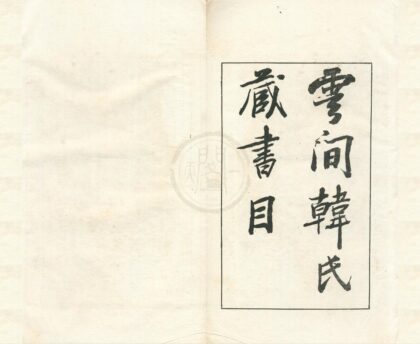 雲间韓氏
藏書目